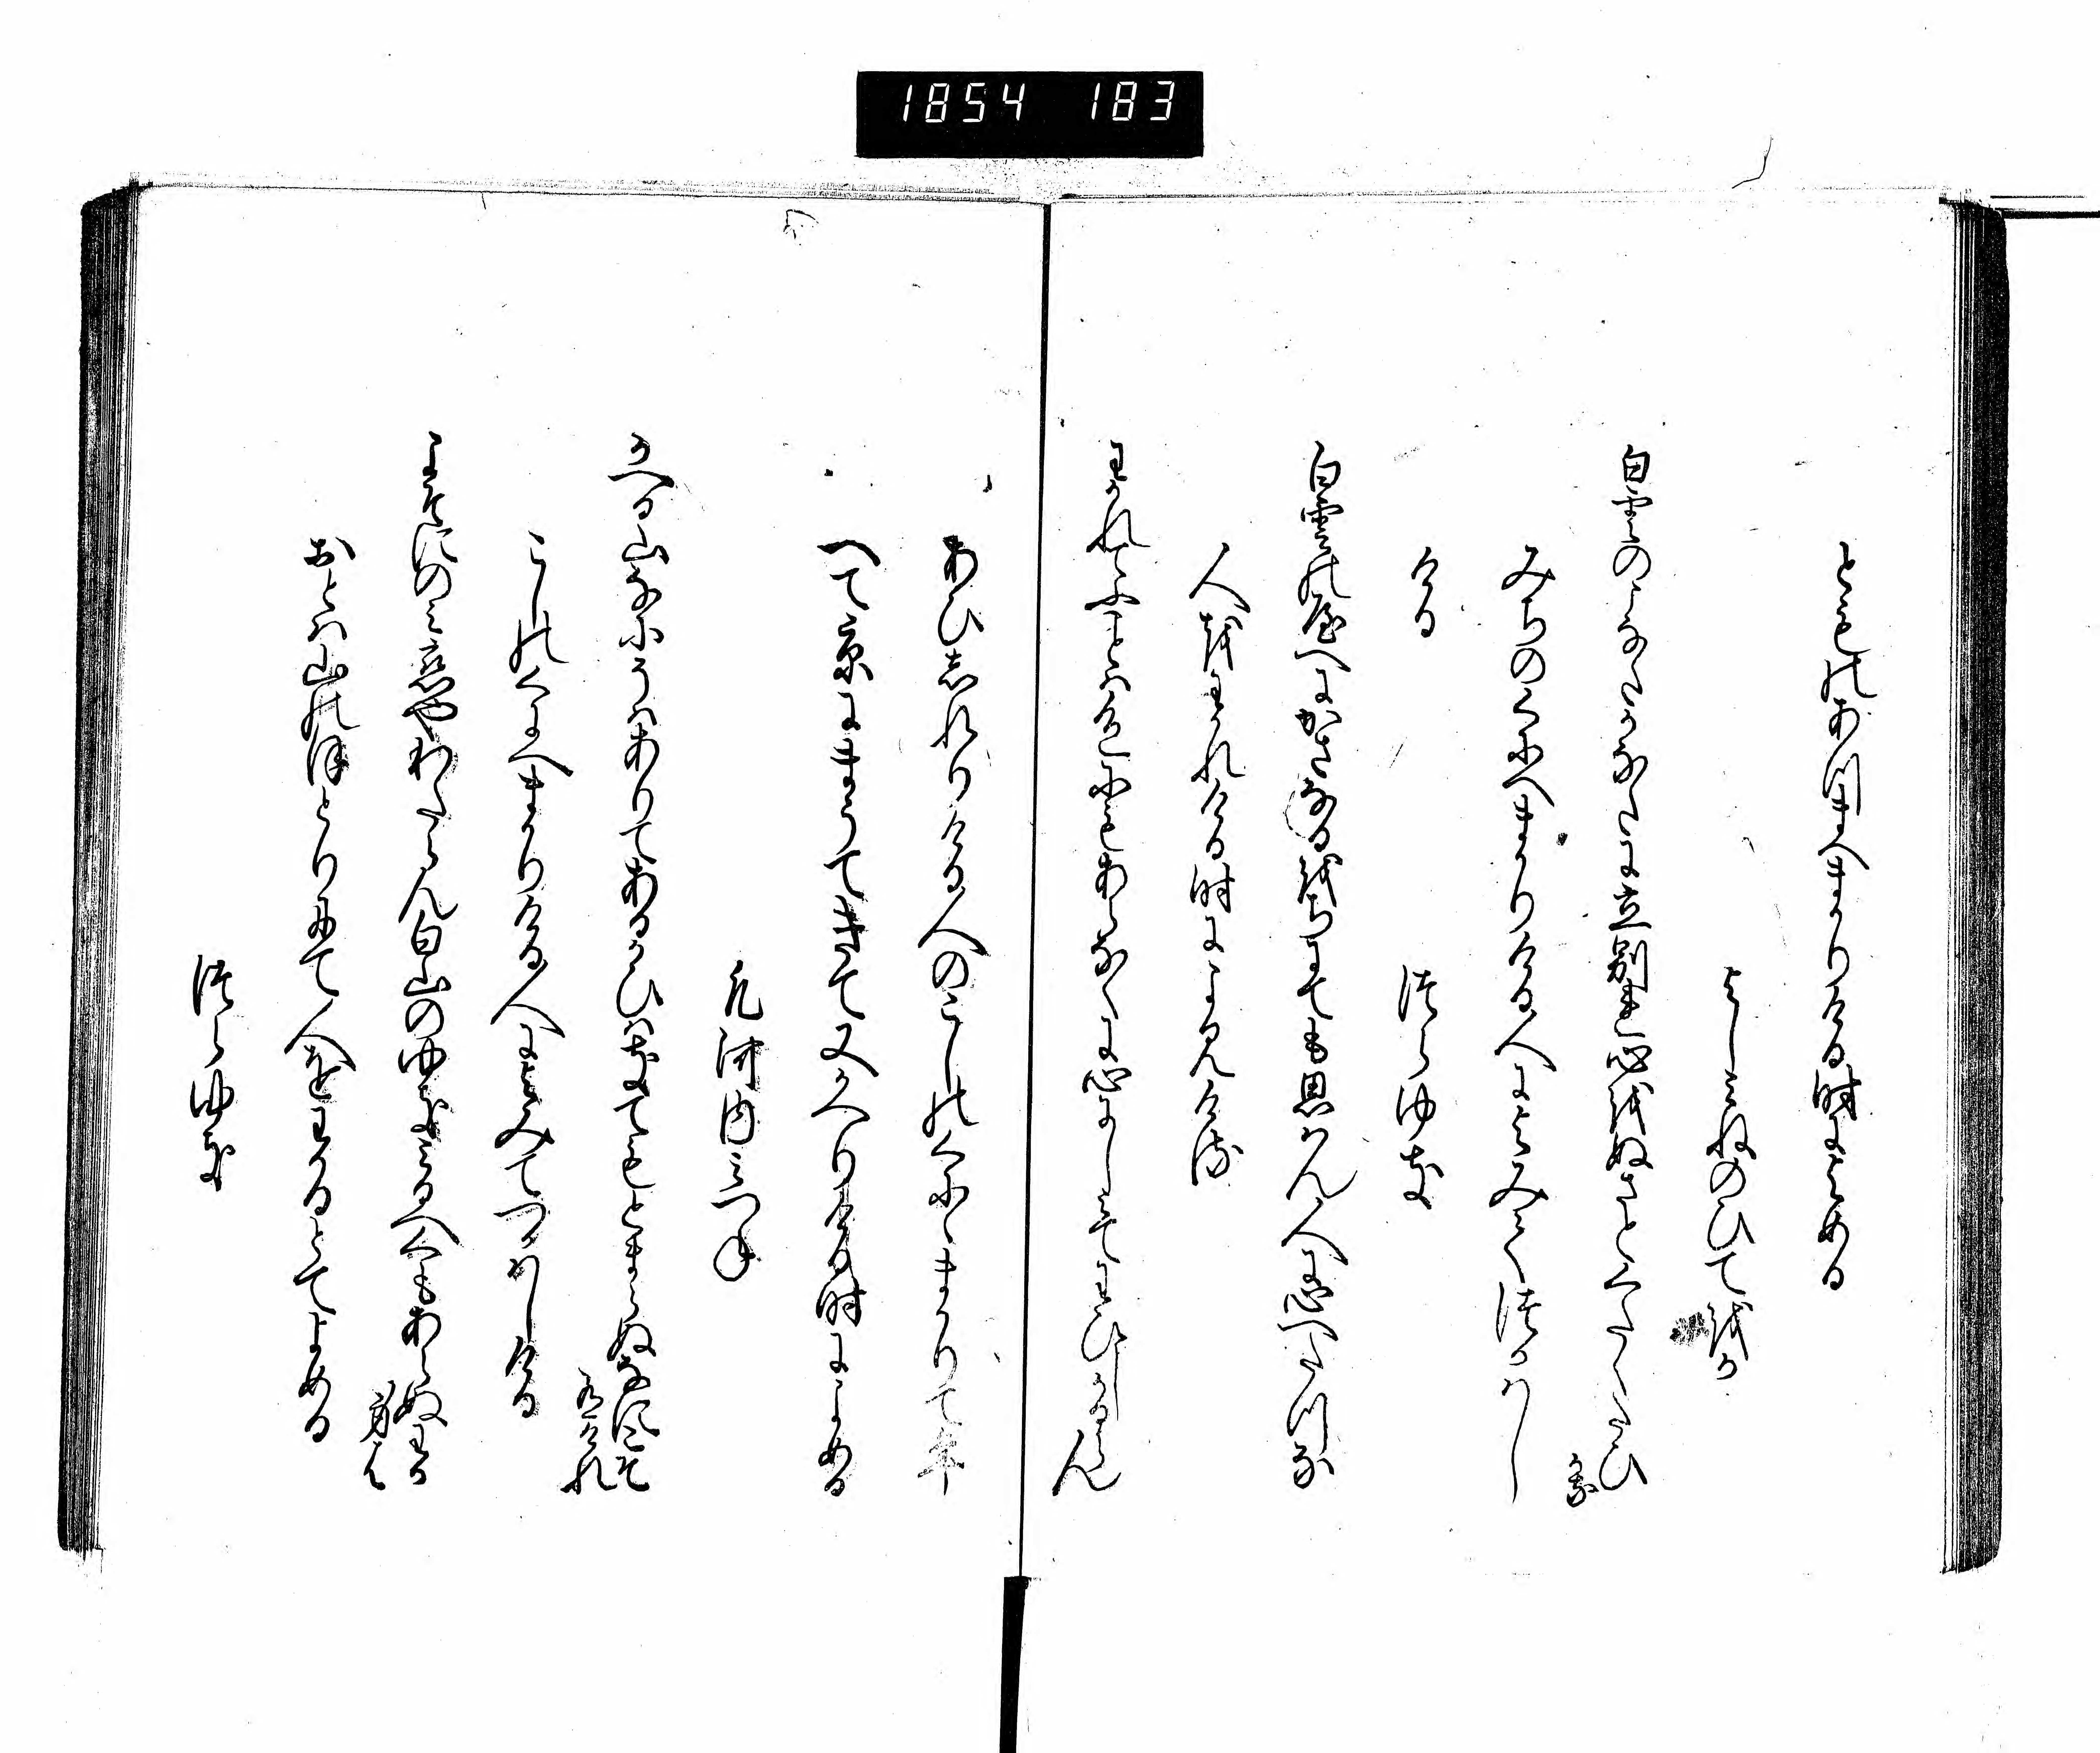 1854 183
とものあつまへまかりける時によめる
よしみねのひてをか
白雲のこなたかなたに立別れ心をぬさとくたくたひ
かな
みちのくにへまかりける人によみてつかはし
ける
つらゆき
白雲の八へにかさなるをちにても思はん人に心へたつな
人をわかれける時によみける
わかれてふことは色にもあらなくに心にしみてわひしかるらん
あひしれりける人のこしのくにゝまかりて年
へて京にまうてきて又かへりける時によめる
凡河内みつね
かへる山なにそはありてあるかひはきてもとまらぬなにこそ
有けれ
こしのくにへまかりける人によみてつかはしける
よそにのみ恋やわたらん白山のゆきみるへくもあらぬわか
身は
おとは山のほとりにて人をわかるとてよめる
つらゆき